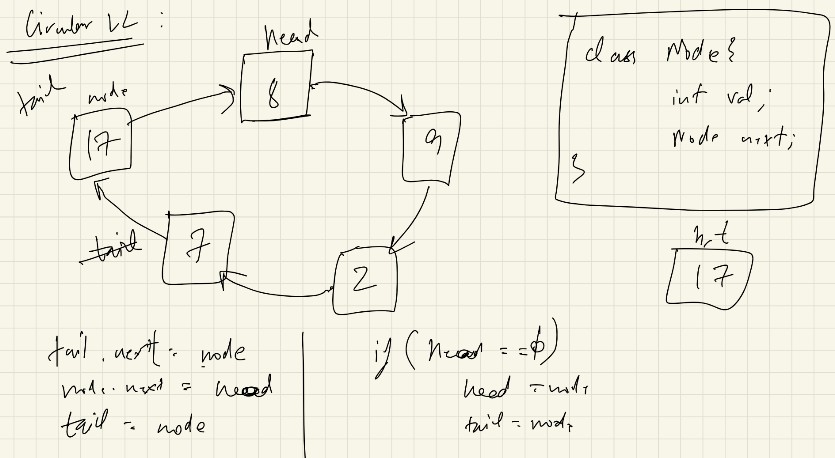 Circular LL :
head
8
tail node
17
9
tail
7
2
class Node{
int val;
Node next;
}
h,t
17
tail.next = node
node.next = head
tail = node
if (head == φ)
head = node
tail = node